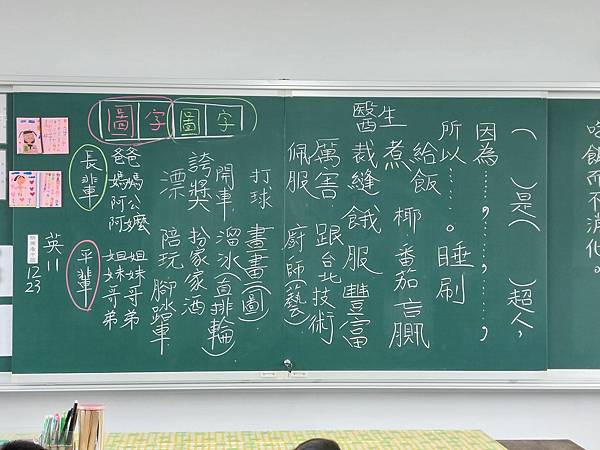 而不消化。
（　）是（　）超人，
因為……，……，
所以……。睡刷
給飯
醫生
煮 椰 番茄 言 贏
裁縫 餓 服 豐富
厲害 跟台北技術
佩服 廚師(藝)
圖字圖字
打球 畫畫(圖)
開車 溜冰(直排輪)
誇獎 扮家家酒
漂 陪玩 腳踏車
長輩
爸媽
媽公嬤
阿阿
平輩
姐妹哥弟
姐妹哥弟
英11
12
23